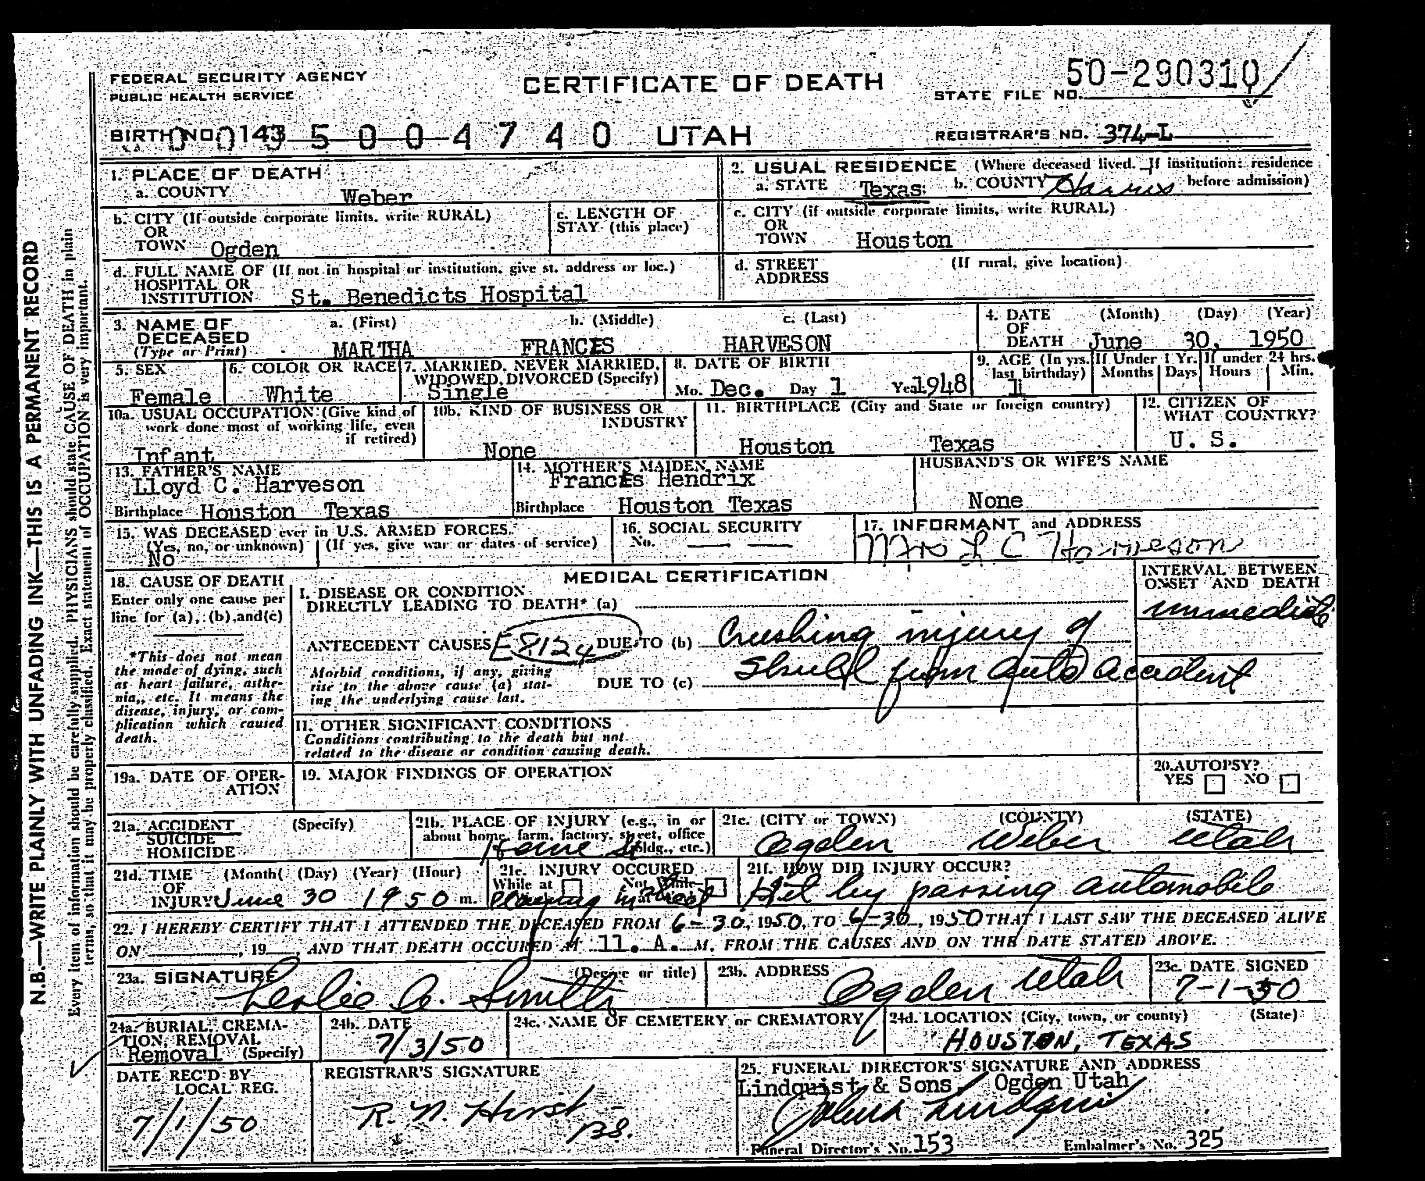 FEDERAL SECURITY AGENCY
PUBLIC HEALTH SERVICE
CERTIFICATE OF DEATH
STATE FILE NO. 50-290310
BIRTH NO. 0 0143 5 0 0 4 7 4 0 UTAH
REGISTRAR'S NO. 374-L
1. PLACE OF DEATH
a. COUNTY Weber
2. USUAL RESIDENCE (Where deceased lived. If institution: residence before admission)
a. STATE Texas b. COUNTY Harris
b. CITY (If outside corporate limits, write RURAL)
OR
TOWN Ogden
c. LENGTH OF
STAY (this place)
c. CITY (if outside corporate limits, write RURAL)
OR
TOWN Houston
d. FULL NAME OF (If not in hospital or institution, give st. address or loc.)
HOSPITAL OR
INSTITUTION St. Benedicts Hospital
d. STREET (If rural, give location)
ADDRESS
3. NAME OF DECEASED (Type or Print)
a. (First) b. (Middle) c. (Last)
MARTHA FRANCES HARVESON
4. DATE OF DEATH (Month) (Day) (Year)
June 30, 1950
5. SEX
Female
6. COLOR OR RACE
White
7. MARRIED, NEVER MARRIED,
WIDOWED, DIVORCED (Specify)
Single
8. DATE OF BIRTH
Mo. Dec. Day 1 Year 1948
9. AGE (In yrs. last birthday) 1
If Under 1 Yr. Months Days
If under 24 hrs. Hours Min.
10a. USUAL OCCUPATION (Give kind of
work done most of working life, even
if retired)
Infant
10b. KIND OF BUSINESS OR
INDUSTRY
None
11. BIRTHPLACE (City and State or foreign country)
Houston Texas
12. CITIZEN OF
WHAT COUNTRY?
U. S.
13. FATHER'S NAME
Lloyd C. Harveson
Birthplace Houston Texas
14. MOTHER'S MAIDEN NAME
Frances Hendrix
Birthplace Houston Texas
HUSBAND'S OR WIFE'S NAME
None
15. WAS DECEASED ever in U.S. ARMED FORCES.
(Yes, no, or unknown) (If yes, give war or dates of service)
No
16. SOCIAL SECURITY
No. — —
17. INFORMANT and ADDRESS
Mrs L C Harveson
18. CAUSE OF DEATH
Enter only one cause per
line for (a), (b), and (c)
*This does not mean
the mode of dying, such
as heart failure, asthe-
nia, etc. It means the
disease, injury, or com-
plication which caused
death.
MEDICAL CERTIFICATION
I. DISEASE OR CONDITION
DIRECTLY LEADING TO DEATH* (a)
INTERVAL BETWEEN
ONSET AND DEATH
immediate
ANTECEDENT CAUSES E8124 DUE TO (b) Crushing injury of
Morbid conditions, if any, giving
rise to the above cause (a) stat-
ing the underlying cause last.
DUE TO (c) Skull from auto accident
II. OTHER SIGNIFICANT CONDITIONS
Conditions contributing to the death but not
related to the disease or condition causing death.
19a. DATE OF OPER-
ATION
19. MAJOR FINDINGS OF OPERATION
20. AUTOPSY?
YES NO
21a. ACCIDENT (Specify)
SUICIDE
HOMICIDE
21b. PLACE OF INJURY (e.g., in or
about home, farm, factory, street, office
bldg., etc.)
Home
21c. (CITY or TOWN) (COUNTY) (STATE)
Ogden Weber Utah
21d. TIME (Month) (Day) (Year) (Hour)
OF
INJURY June 30 1950 m.
21e. INJURY OCCURED
While at Not While
playing in street
21f. HOW DID INJURY OCCUR?
Hit by passing automobile
22. I HEREBY CERTIFY THAT I ATTENDED THE DECEASED FROM 6-30, 1950, TO 6-30, 1950 THAT I LAST SAW THE DECEASED ALIVE
ON , 19 , AND THAT DEATH OCCURED AT 11. A. M. FROM THE CAUSES AND ON THE DATE STATED ABOVE.
23a. SIGNATURE (Degree or title)
Leslie A. Smith
23b. ADDRESS
Ogden Utah
23c. DATE SIGNED
7-1-50
24a. BURIAL, CREMA-
TION, REMOVAL
Removal (Specify)
24b. DATE
7/3/50
24c. NAME OF CEMETERY or CREMATORY
24d. LOCATION (City, town, or county) (State)
HOUSTON, TEXAS
DATE REC'D BY
LOCAL REG.
7/1/50
REGISTRAR'S SIGNATURE
R. N. Hirst
BS.
25. FUNERAL DIRECTOR'S SIGNATURE AND ADDRESS
Lindquist & Sons Ogden Utah
Funeral Director's No. 153 Embalmer's No. 325
N.B.—WRITE PLAINLY WITH UNFADING INK—THIS IS A PERMANENT RECORD
Every item of information should be carefully supplied. PHYSICIANS should state CAUSE OF DEATH in plain
terms, so that it may be properly classified. Exact statement of OCCUPATION is very important.